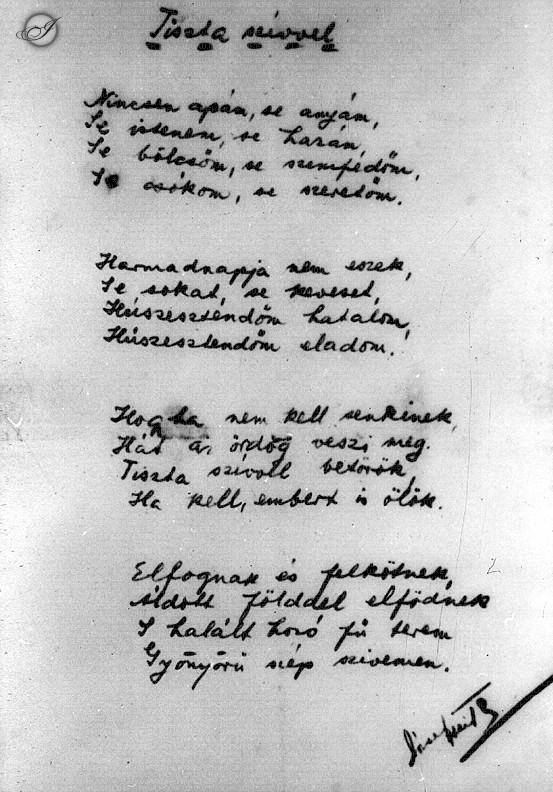 Tiszta szívvel
Nincsen apám, se anyám,
Se istenem, se hazám,
Se bölcsőm, se szemfedőm,
Se csókom, se szeretőm.
Harmadnapja nem eszek,
Se sokat, se keveset,
Húszesztendőm hatalom,
Húszesztendőm eladom.
Hogyha nem kell senkinek,
Hát az ördög veszi meg.
Tiszta szívvel betörök,
Ha kell, embert is ölök.
Elfognak és felkötnek,
Áldott földdel elfödnek
S halált hozó fű terem
Gyönyörű szép szivemen.
József Attila